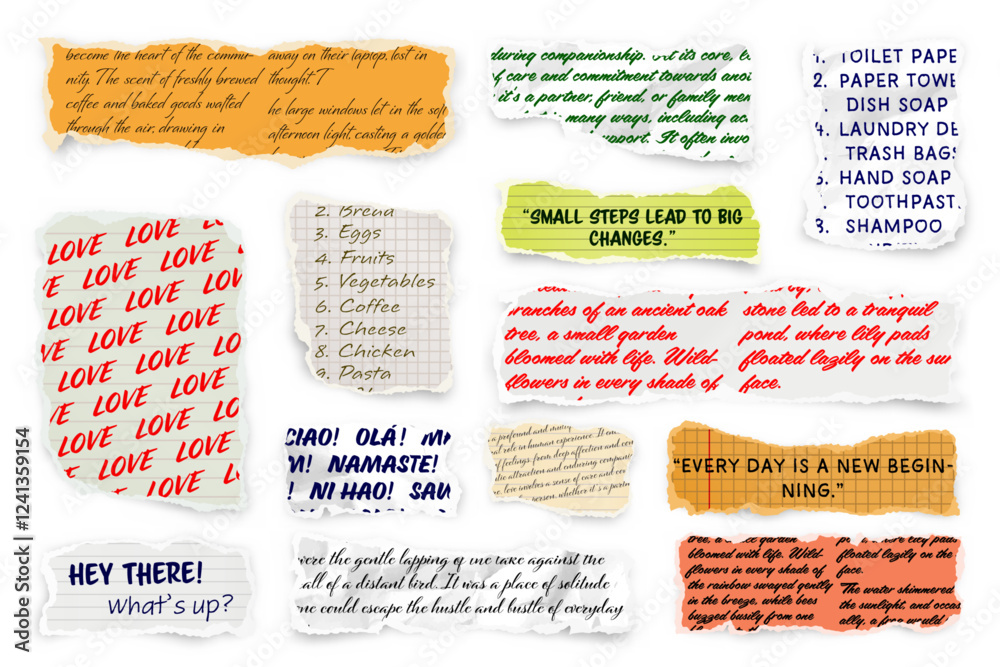 become the heart of the commu-
nity. The scent of freshly brewed
coffee and baked goods wafted
through the air, drawing in
away on their laptop, lost in
thought. T
he large windows let in the sof
afternoon light, casting a golde
during companionship. but its core, l
of care and commitment towards anoi
it's a partner, friend, or family mem
many ways, including ac
pport. It often invo
1. TOILET PAPE
2. PAPER TOWE
DISH SOAP
4. LAUNDRY DE
TRASH BAGS
6. HAND SOAP
TOOTHPAST
8. SHAMPOO
"SMALL STEPS LEAD TO BIG
CHANGES."
LOVE LOVE LOVE
VE LOVE LOVE LO
LOVE LOVE LOVE
VE LOVE LOVE LO
LOVE LOVE LOVE
VE LOVE LOVE LO
LOVE LOVE LOVE
VE LOVE LOVE LO
LOVE LOVE LOVE
LOVE LOVE LO
2. Bread
3. Eggs
4. Fruits
5. Vegetables
6. Coffee
7. Cheese
8. Chicken
9. Pasta
branches of an ancient oak
tree, a small garden
bloomed with life. Wild-
flowers in every shade of
stone led to a tranquil
pond, where lily pads
floated lazily on the sur
face.
CIAO! OLÁ!
M! NAMASTE!
! NI HAO! SAW
a profound and many
al role in human experience. It en
f feelings, from deep affection and con
tic attraction and enduring compani
e, love involves a sense of care and
person, whether it's a partn
"EVERY DAY IS A NEW BEGIN-
NING."
HEY THERE!
what's up?
were the gentle lapping of the lake against the
call of a distant bird. It was a place of solitude
one could escape the hustle and hustle of everyday
tree, a small garden
bloomed with life. Wild-
flowers in every shade of
the rainbow swayed gently
in the breeze, while bees
buzzed busily from one
pond, where lily pads
floated lazily on the
face.
The water shimmered
the sunlight, and occas
ally, a frog would
Adobe Stock | #1241359154